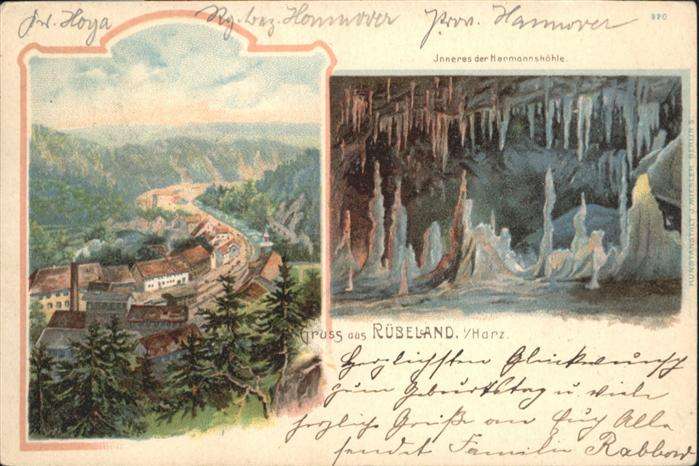 Kr. Hoya Rg. bez. Hannover Prov. Hannover
920
Inneres der Hermannshöhle.
Gruss aus RÜBELAND. i/Harz.
Herzlichsten Glückwunsch
zum Geburtstag u viele
herzliche Grüße an Euch Alle
sendet Familie Rabbow